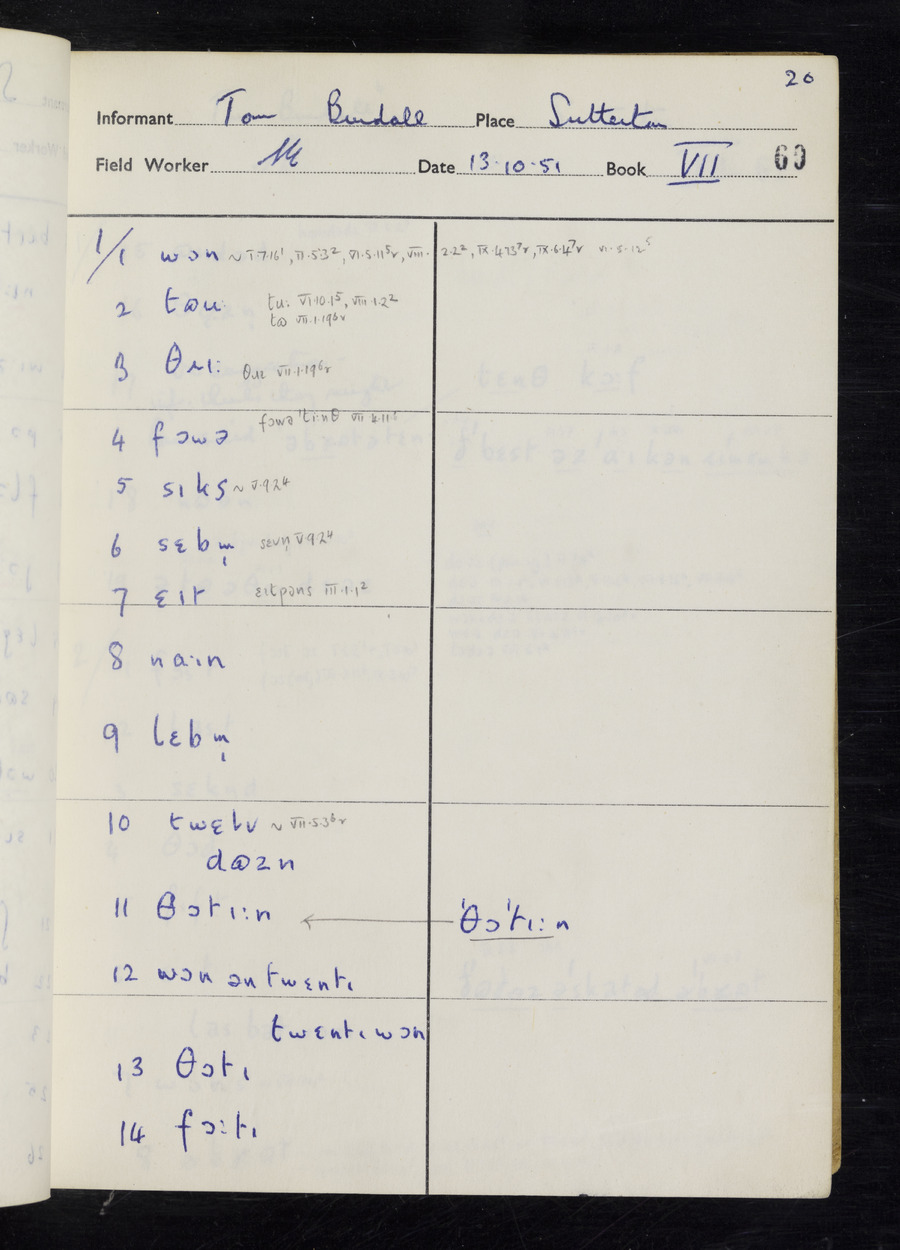 20
Informant Tom Burdall Place Sutterton
Field Worker Date 13·10·51 Book VII 69
1/1 wɔn ~ I.7.16¹, VI.5.3², VI.5.11⁵r, VIII.2.2², IX.4.13⁷r, IX.6.4⁷r VI.5.12⁵
2 tɷu: tu: VI.10.1⁵, VIII.1.2²
tɷ VII.1.19⁶r
3 θɹɪ: θɹɪ VII.1.19⁶r
fɔwə'ti:nθ
4 fɔwə
5 sɪks ~ V.9.24
6 sɛbm̩ sɛvn̩ V.9.24
7 ɛɪt ɛɪtpɔns III.1.1²
8 na:ɪn
9 lɛbm̩
10 twɛlv ~ VII.5.3⁶r
dɷzn
11 θɔtɪ:n 'θɔ'tɪ:n
12 wɔn ən twɛntɪ
twɛntɪ wɔn
13 θɔtɪ
14 fɔ:tɪ